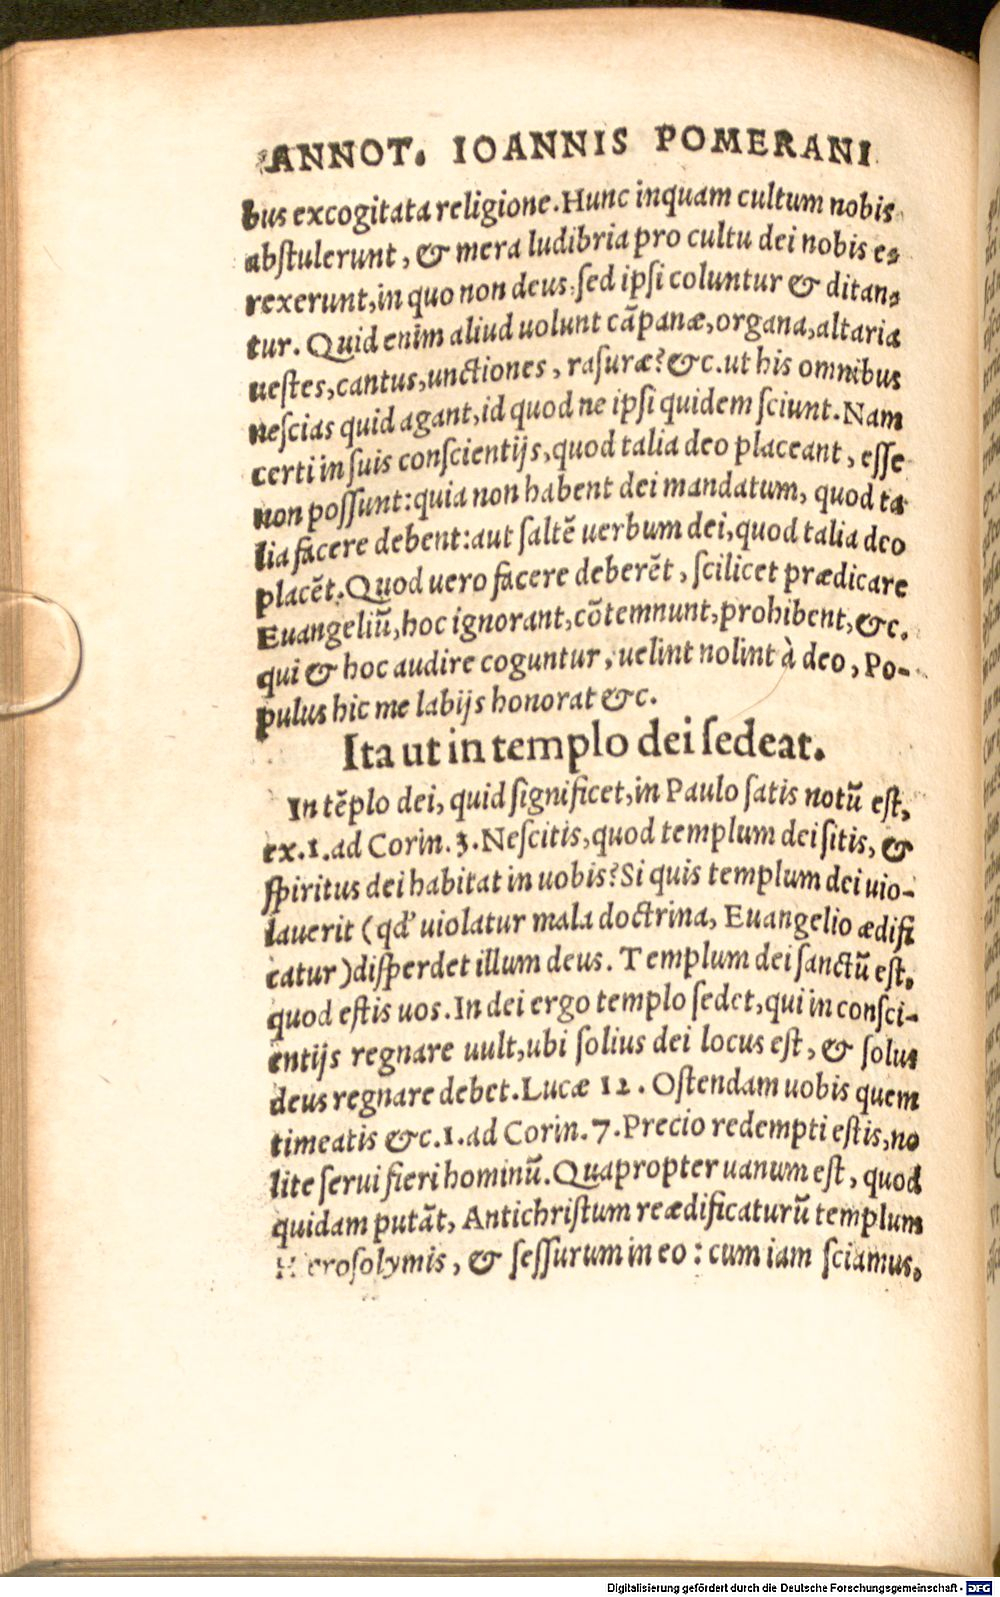 ANNOT. IOANNIS POMERANI
bus excogitata religione. Hunc inquam cultum nobis
abſtulerunt, & mera ludibria pro cultu dei nobis e⸗
rexerunt, in quo non deus. ſed ipſi coluntur & ditan⸗
tur. Quid enim aliud uolunt cãpanæ, organa, altaria
ueſtes, cantus, unctiones, raſuræ? &c. ut his omnibus
neſcias quid agant, id quod ne ipſi quidem ſciunt. Nam
certi in ſuis conſcientijs, quod talia deo placeant, eſſe
non poſſunt: quia non habent dei mandatum, quod ta
lia facere debent: aut ſaltẽ uerbum dei, quod talia deo
placẽt. Quod uero facere deberẽt, ſcilicet prædicare
Euangeliũ, hoc ignorant, cõtemnunt, prohibent, &c.
qui & hoc audire coguntur, uelint nolint à deo, Po-
pulus hic me labijs honorat &c.
Ita ut in templo dei ſedeat.
In tẽplo dei, quid ſignificet, in Paulo ſatis notũ eſt,
ex. 1. ad Corin. 3. Neſcitis, quod templum dei ſitis, &
ſpiritus dei habitat in uobis? Si quis templum dei uio-
lauerit (qd' uiolatur mala doctrina, Euangelio ædifi
catur) diſperdet illum deus. Templum dei ſanctũ eſt,
quod eſtis uos. In dei ergo templo ſedet, qui in conſci-
entijs regnare uult, ubi ſolius dei locus eſt, & ſolus
deus regnare debet. Lucæ 12. Oſtendam uobis quem
timeatis &c. 1. ad Corin. 7. Precio redempti eſtis, no
lite ſerui fieri hominũ. Quapropter uanum eſt, quod
quidam putãt, Antichriſtum reædificaturũ templum
Hieroſolymis, & ſeſſurum in eo: cum iam ſciamus,
Digitalisierung gefördert durch die Deutsche Forschungsgemeinschaft - DFG